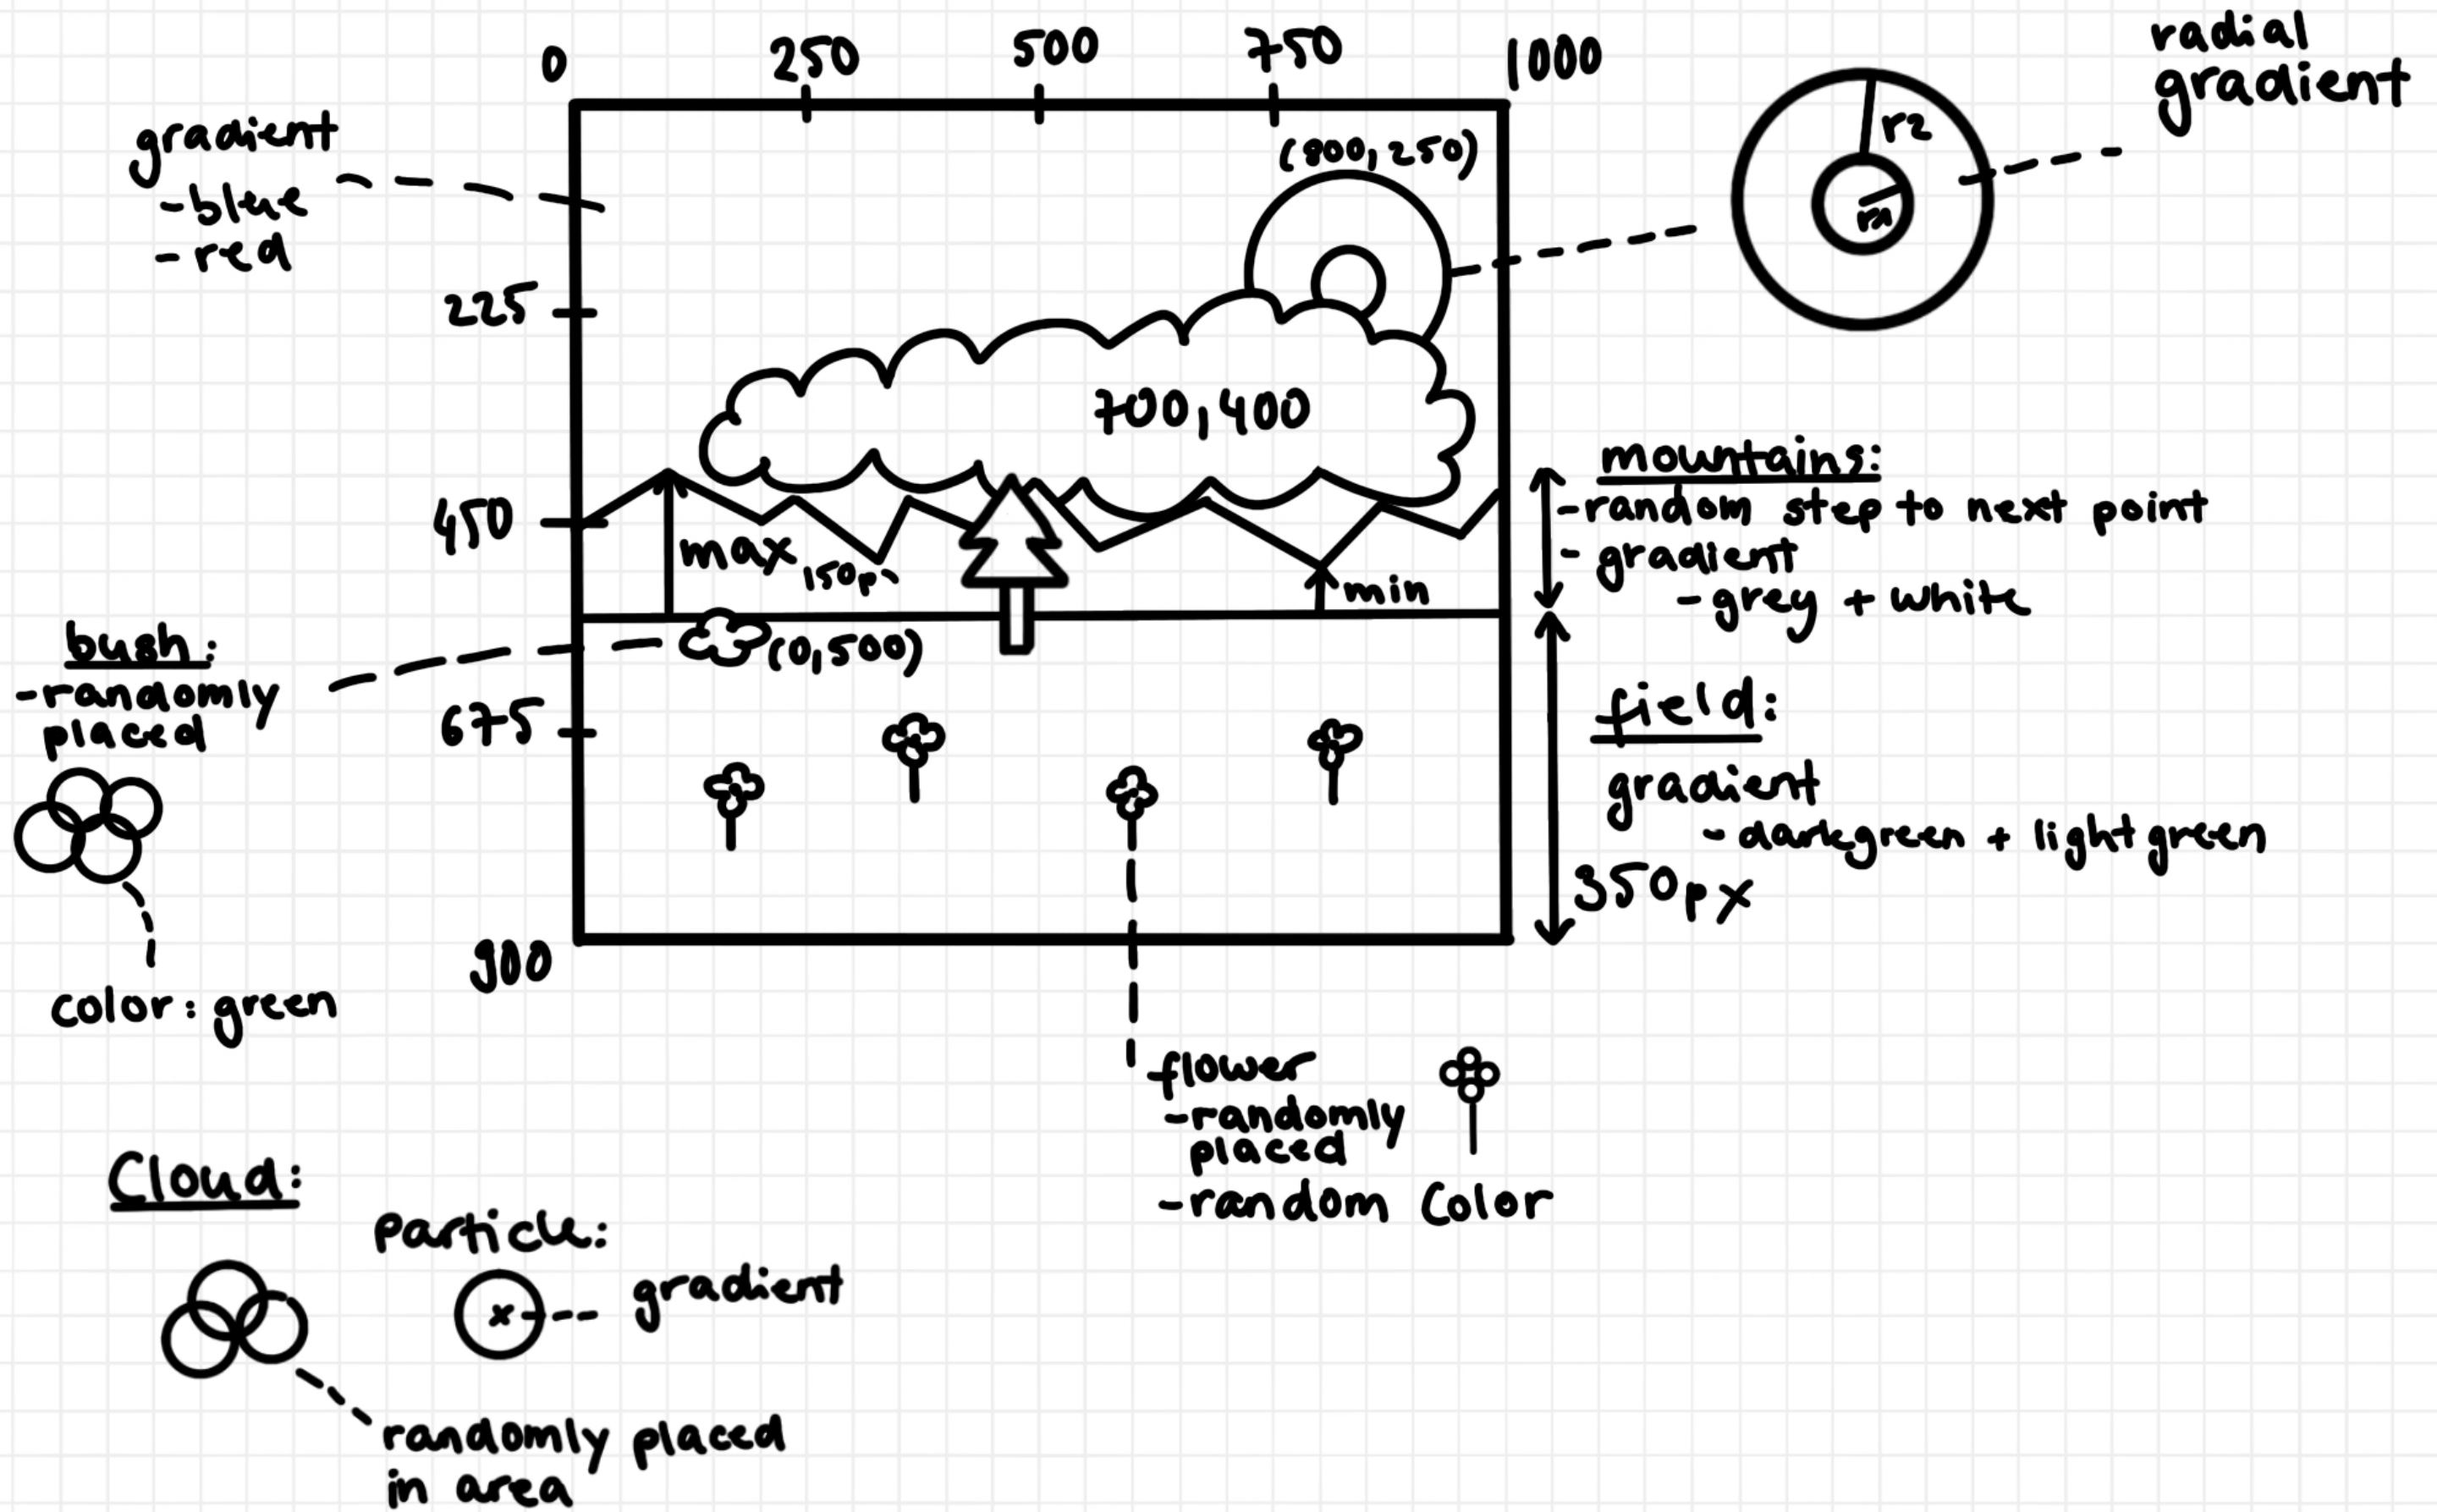 0
250
500
750
1000
radial
gradient
gradient
-blue
-red
(800, 250)
r2
r1
225
700, 400
450
max
150px
min
mountains:
-random step to next point
- gradient
- grey + white
bush:
-randomly
placed
(0, 500)
675
field:
gradient
- darkgreen + lightgreen
350px
900
color: green
flower
-randomly
placed
-random Color
Cloud:
Particle:
x
gradient
randomly placed
in area